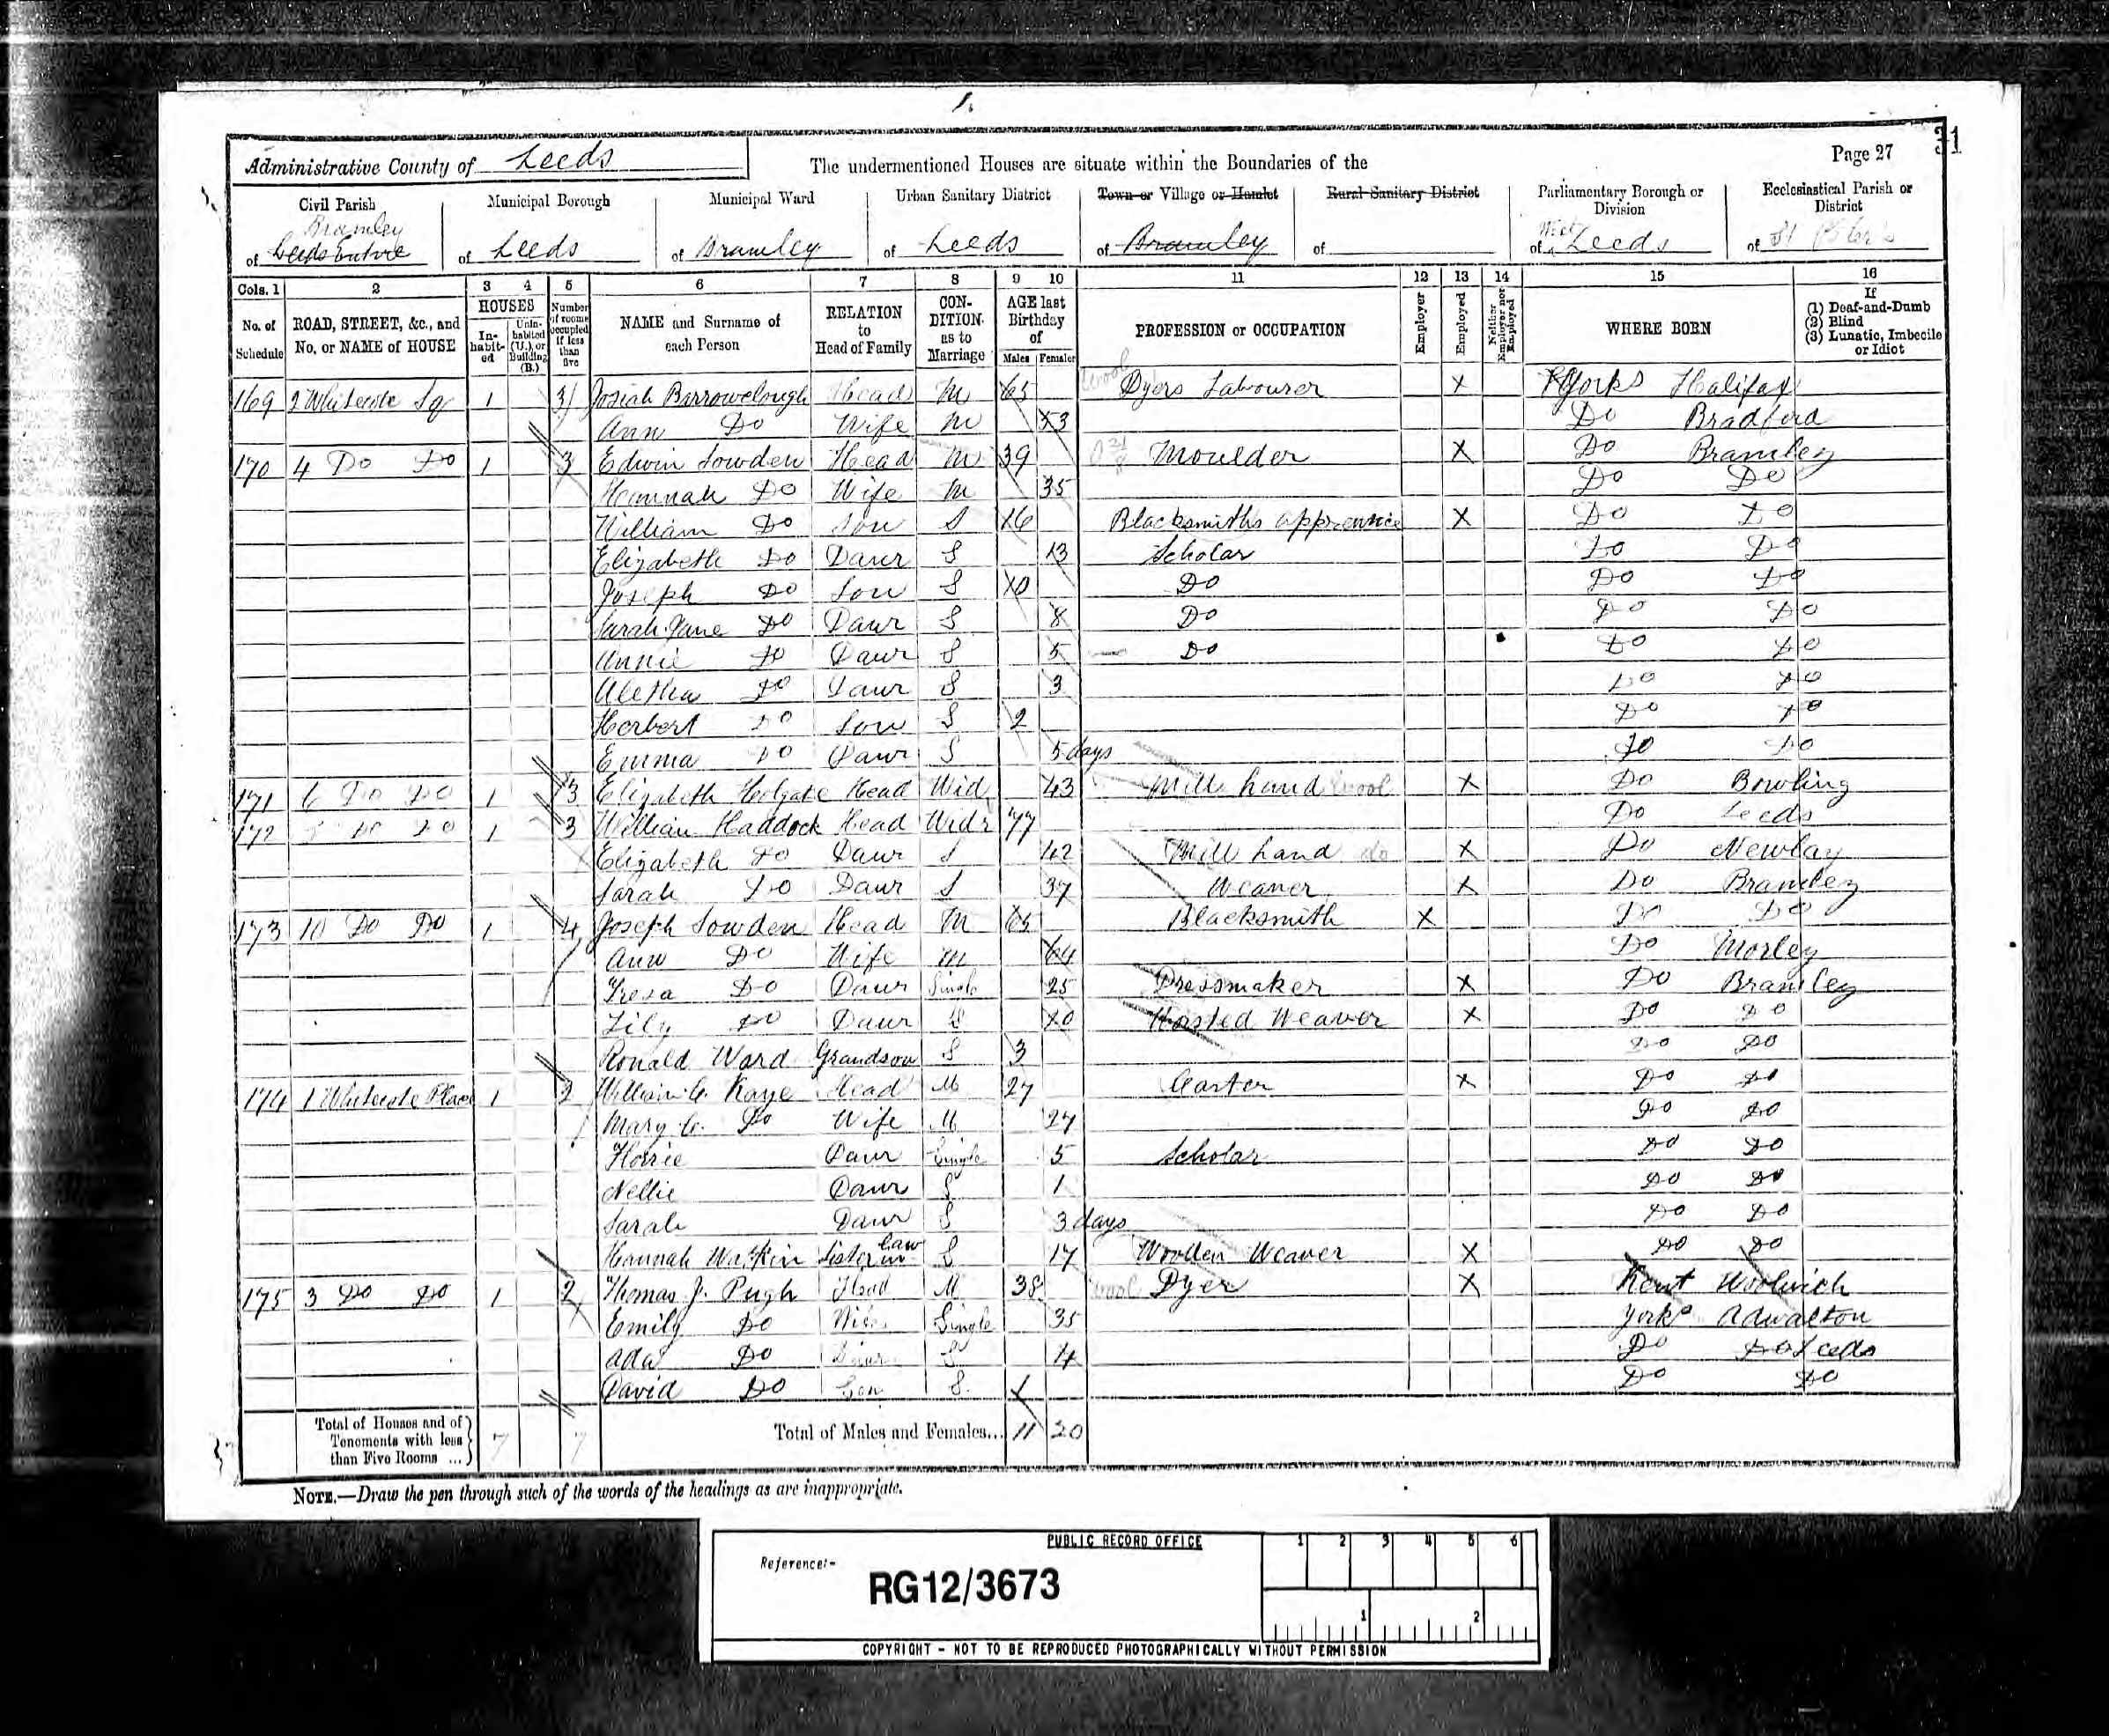 31
Page 27
Administrative County of Leeds
The undermentioned Houses are situate within the Boundaries of the
Civil Parish
Municipal Borough
Municipal Ward
Urban Sanitary District
Town or Village or Hamlet
Rural Sanitary District
Parliamentary Borough or Division
Ecclesiastical Parish or District
Bramley
of Leeds
of Bramley
of Leeds
of Bramley
of
of West Leeds
of St Peter's
Cols. 1 2 3 4 5 6 7 8 9 10 11 12 13 14 15 16
No. of Schedule
ROAD, STREET, &c., and No. or NAME of HOUSE
HOUSES
In-habit-ed
Unin-habited (U.), or Building (B.)
Number of rooms occupied if less than five
NAME and Surname of each Person
RELATION to Head of Family
CON-DITION as to Marriage
AGE last Birthday of
Males Females
PROFESSION or OCCUPATION
Employer
Employed
Neither Employer nor Employed
WHERE BORN
If
(1) Deaf-and-Dumb
(2) Blind
(3) Lunatic, Imbecile or Idiot
169 2 Whitecote Sq 1 3 Josiah Barrowclough Head M 65 Wool Dyers Labourer X Yorks Halifax
Ann Do Wife M 53 Do Bradford
170 4 Do Do 1 3 Edwin Sowden Head M 39 Moulder X Do Bramley
Hannah Do Wife M 35 Do Do
William Do Son S 16 Blacksmiths apprentice X Do Do
Elizabeth Do Daur S 13 Scholar Do Do
Joseph Do Son S 10 Do Do Do
Sarah Jane Do Daur S 8 Do Do Do
Annie Do Daur S 5 Do Do Do
Alethea Do Daur S 3 Do Do
Herbert Do Son S 2 Do Do
Emma Do Daur S 5 days Do Do
171 6 Do Do 1 3 Elizabeth Holgate Head Wid 43 Mill hand wool X Do Bowling
172 Do Do 1 3 William Haddock Head Widr 77 Do Leeds
Elizabeth Do Daur S 42 Mill hand do X Do Newlay
Sarah Do Daur S 37 Weaver X Do Bramley
173 10 Do Do 1 4 Joseph Sowden Head M 65 Blacksmith X Do Do
Ann Do Wife M 64 Do Morley
Do Daur Single 25 Dressmaker X Do Bramley
Lily Do Daur S 20 Worsted Weaver X Do Do
Ronald Ward Grandson S 3 Do Do
174 1 Whitecote Place 1 2 William G. Kaye Head M 27 Carter X Do Do
Mary Do Wife M 27 Do Do
Daur Single 5 Scholar Do Do
Nellie Daur S 1 Do Do
Sarah Daur S 3 days Do Do
Hannah Watkin Sister in law S 17 Woollen Weaver X Do Do
175 3 Do Do 1 2 Thomas J. Pugh Head M 38 wool Dyer X Kent Woolwich
Emily Do Wife Single 35 Yorks Adwalton
Ada Do Daur S 4 Do Do Leeds
David Do Son S. 1 Do Do
Total of Houses and of Tenements with less than Five Rooms ... 7 7
Total of Males and Females... 11 20
NOTE.—Draw the pen through such of the words of the headings as are inappropriate.
PUBLIC RECORD OFFICE
1 2 3 4 5 6
Reference:-
RG12/3673
1 2
COPYRIGHT - NOT TO BE REPRODUCED PHOTOGRAPHICALLY WITHOUT PERMISSION